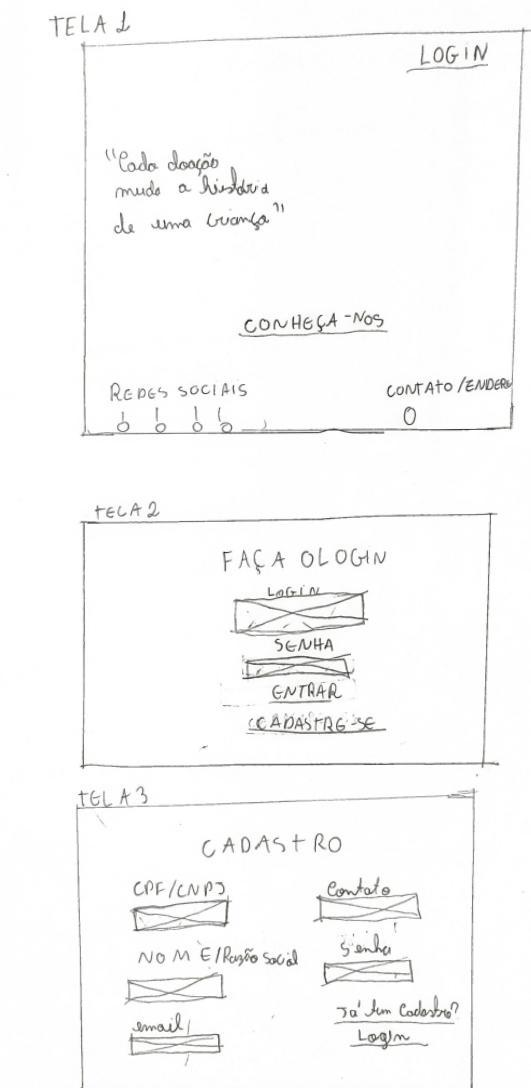 TELA 1
LOGIN
"Cada doação
muda a história
de uma criança"
CONHEÇA-NOS
REDES SOCIAIS
CONTATO/ENDERE
TELA 2
FAÇA O LOGIN
LOGIN
SENHA
ENTRAR
CADASTRE-SE
TELA 3
CADASTRO
CPF/CNPJ
Contato
NOME/Razão Social
Senha
email
Já tem Cadastro?
Login